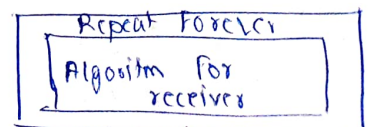 Repeat Forever
Algorithm For
receiver